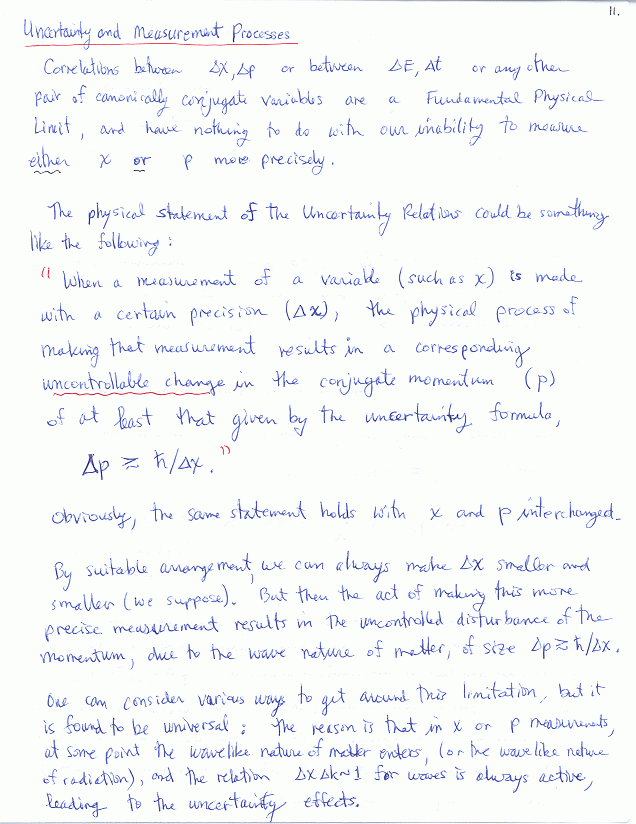 11.
Uncertainty and Measurement Processes
Correlations between Δx, Δp or between ΔE, Δt or any other
pair of canonically conjugate variables are a Fundamental Physical
Limit, and have nothing to do with our inability to measure
either x or p more precisely.
The physical statement of the Uncertainty Relations could be something
like the following:
"When a measurement of a variable (such as x) is made
with a certain precision (Δx), the physical process of
making that measurement results in a corresponding
uncontrollable change in the conjugate momentum (p)
of at least that given by the uncertainty formula,
Δp ≳ ħ/Δx."
Obviously, the same statement holds with x and p interchanged.
By suitable arrangement, we can always make Δx smaller and
smaller (we suppose). But then the act of making this more
precise measurement results in the uncontrolled disturbance of the
momentum, due to the wave nature of matter, of size Δp ≳ ħ/Δx.
One can consider various ways to get around this limitation, but it
is found to be universal: The reason is that in x or p measurements,
at some point the wavelike nature of matter enters, (or the wavelike nature
of radiation), and the relation ΔxΔk~1 for waves is always active,
leading to the uncertainty effects.